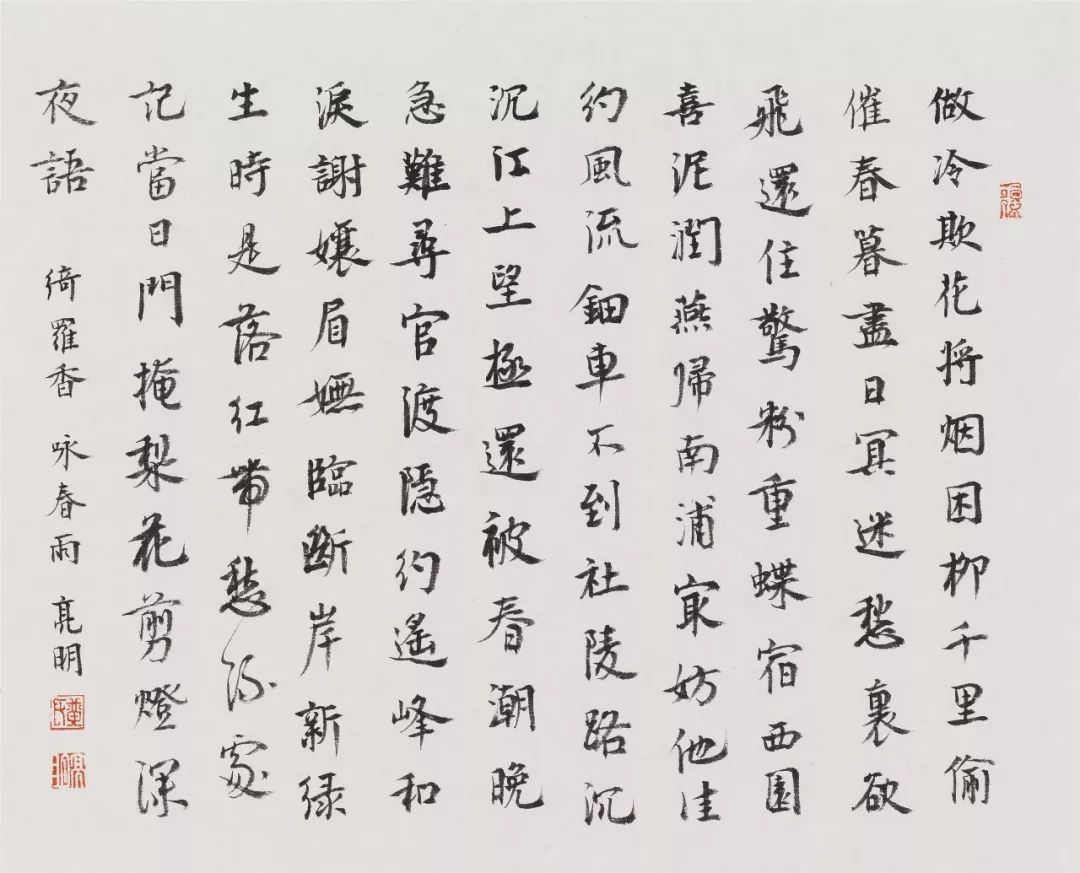 做冷欺花将烟困柳千里偷
催春暮盡日冥迷愁裏欲
飛還住驚粉重蝶宿西園
喜泥潤燕歸南浦㝡妨他佳
約風流鈿車不到社陵路沉
沉江上望極還被春潮晚
急難尋官渡隱約遙峰和
淚謝孃眉嫵臨斷岸新緑
生時是落红帶愁流處
記當日門掩梨花剪燈深
夜語 綺羅香 咏春雨 亮明